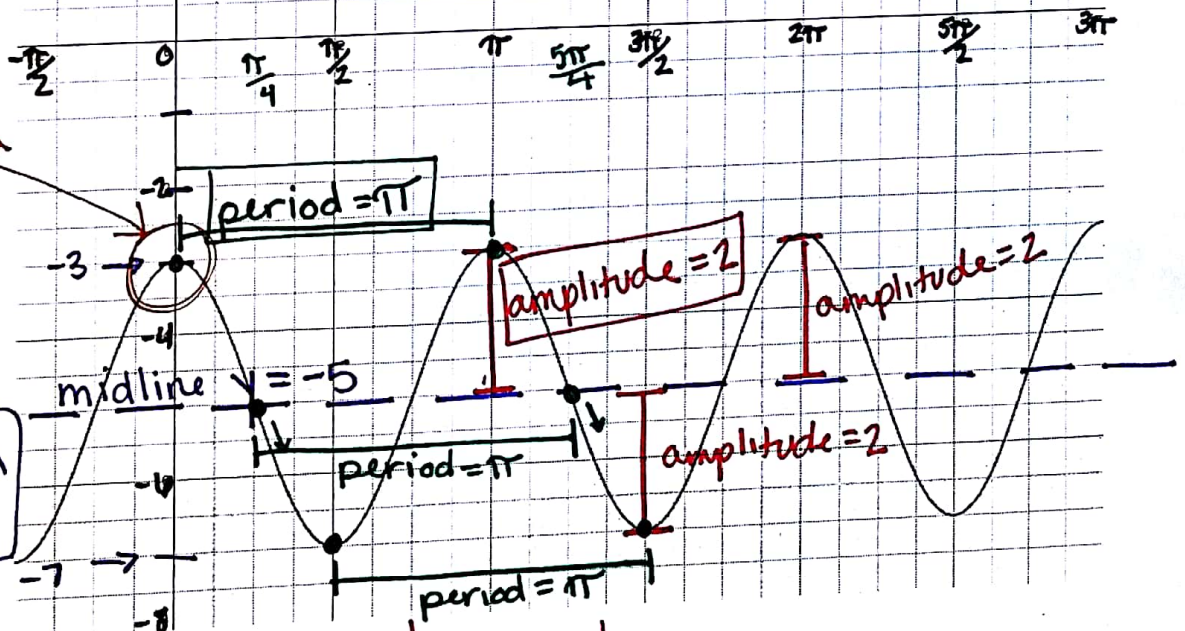 -π/2 0 π/4 π/2 π 5π/4 3π/2 2π 5π/2 3π
-2
period = π
-3
amplitude = 2
amplitude = 2
-4
midline y = -5
period = π
amplitude = 2
-6
-7
period = π
-8